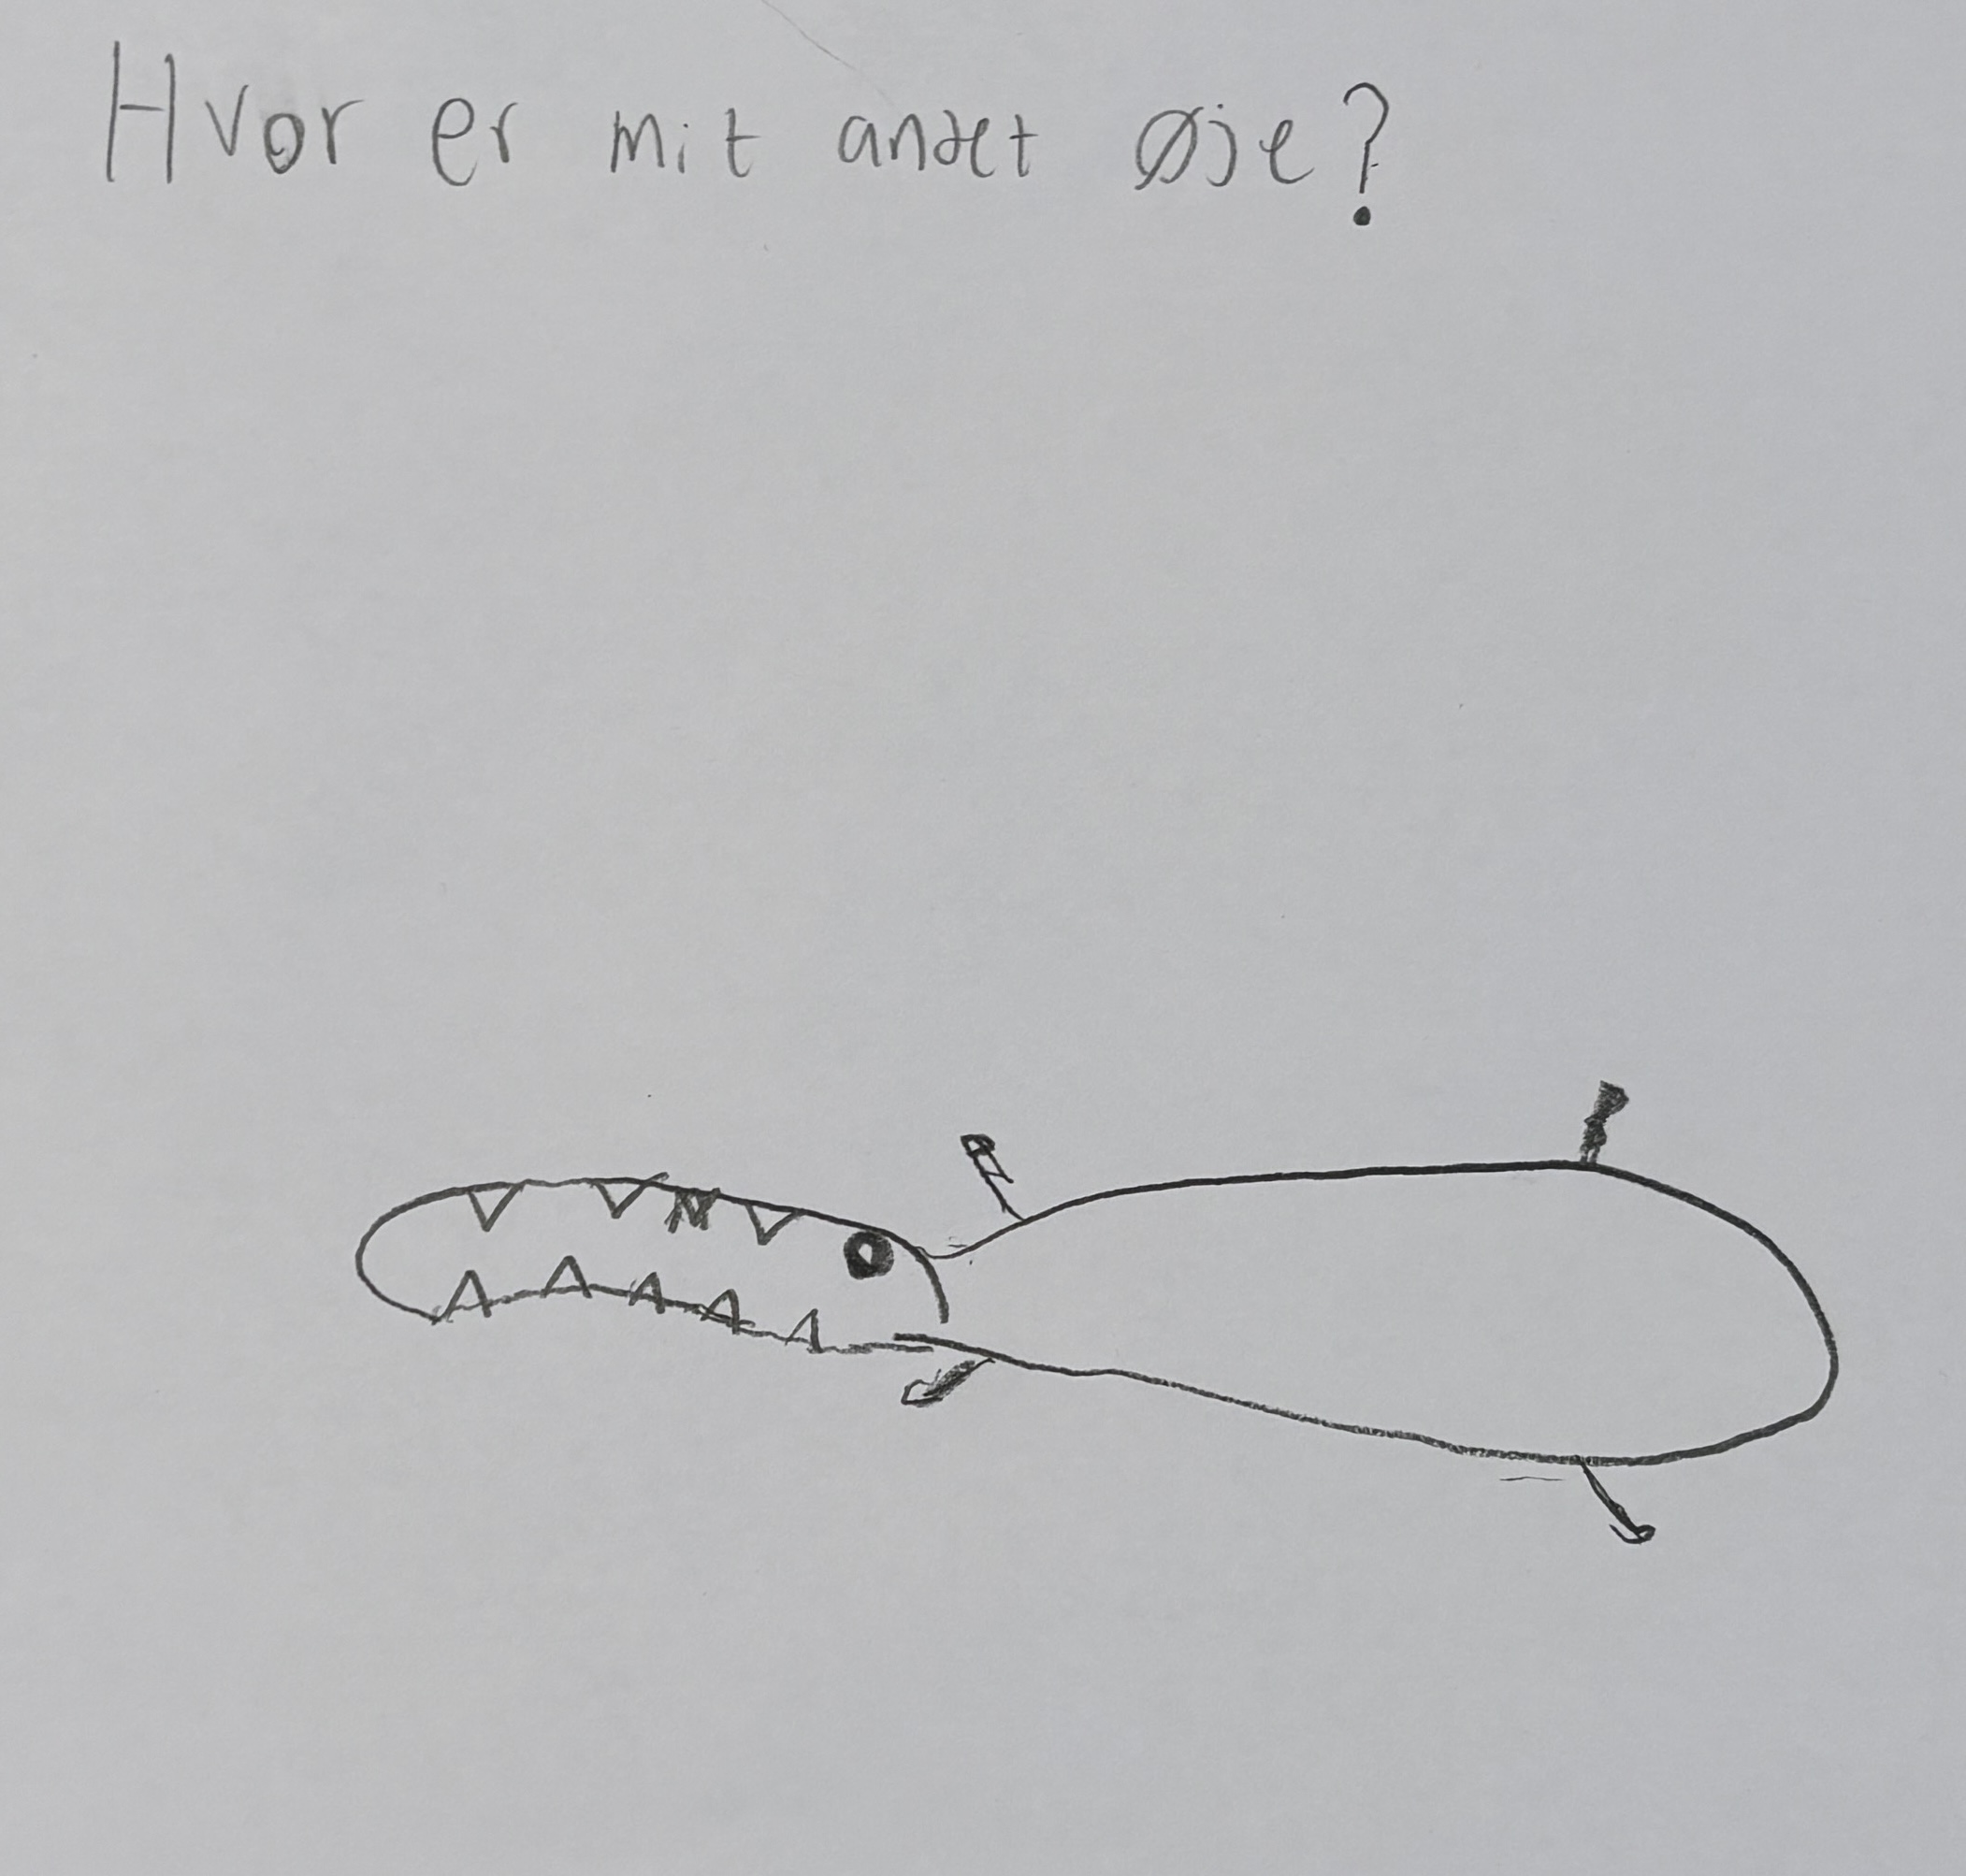 Hvor er mit andet øje?